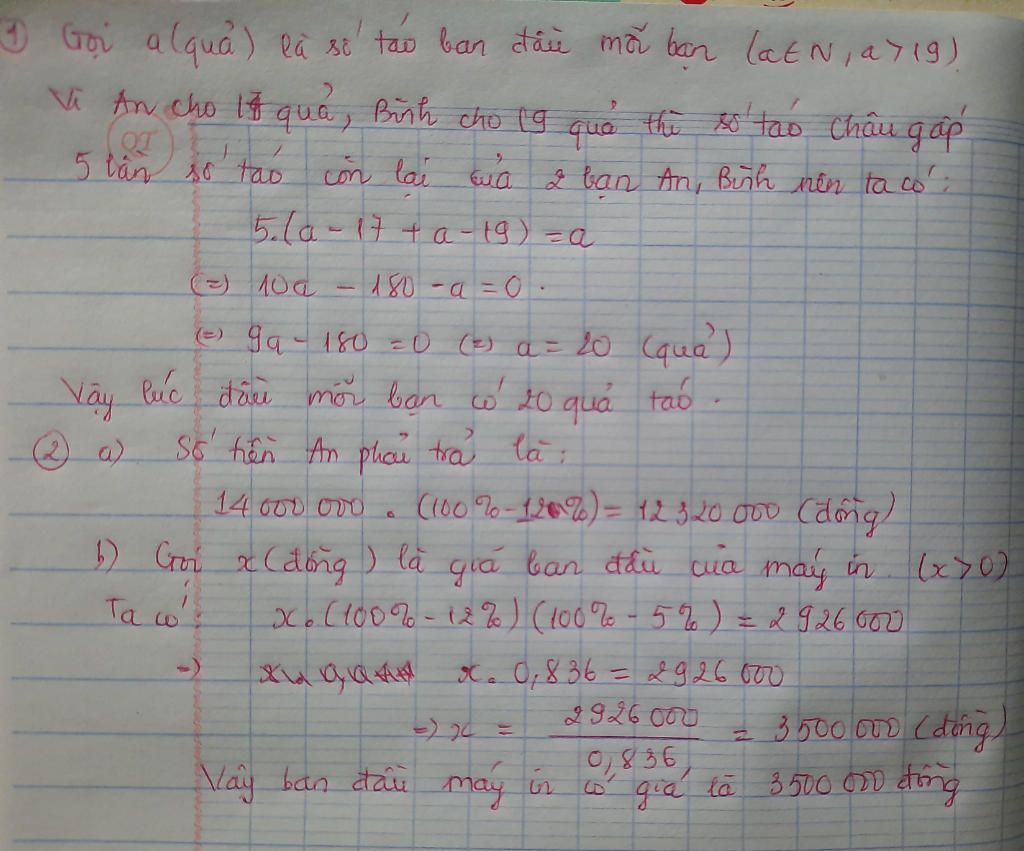 ① Gọi a (quả) là số táo ban đầu mỗi bạn (a ∈ N, a > 19).
Vì An cho 17 quả, Bình cho 19 quả thì số táo Châu gấp
5 lần số táo còn lại của 2 bạn An, Bình nên ta có:
5.(a - 17 + a - 19) = a
(=) 10a - 180 - a = 0.
(=) 9a - 180 = 0 (=) a = 20 (quả)
Vậy lúc đầu mỗi bạn có 20 quả táo.
② a) Số tiền An phải trả là:
14 000 000 . (100% - 12%) = 12 320 000 (đồng)
b) Gọi x (đồng) là giá ban đầu của máy in (x > 0)
Ta có x. (100% - 12%) (100% - 5%) = 2 926 000
=) x. 0,836 = 2926 000
=) x = 2926 000 / 0,836 = 3 500 000 (đồng)
Vậy ban đầu máy in có giá là 3 500 000 đồng